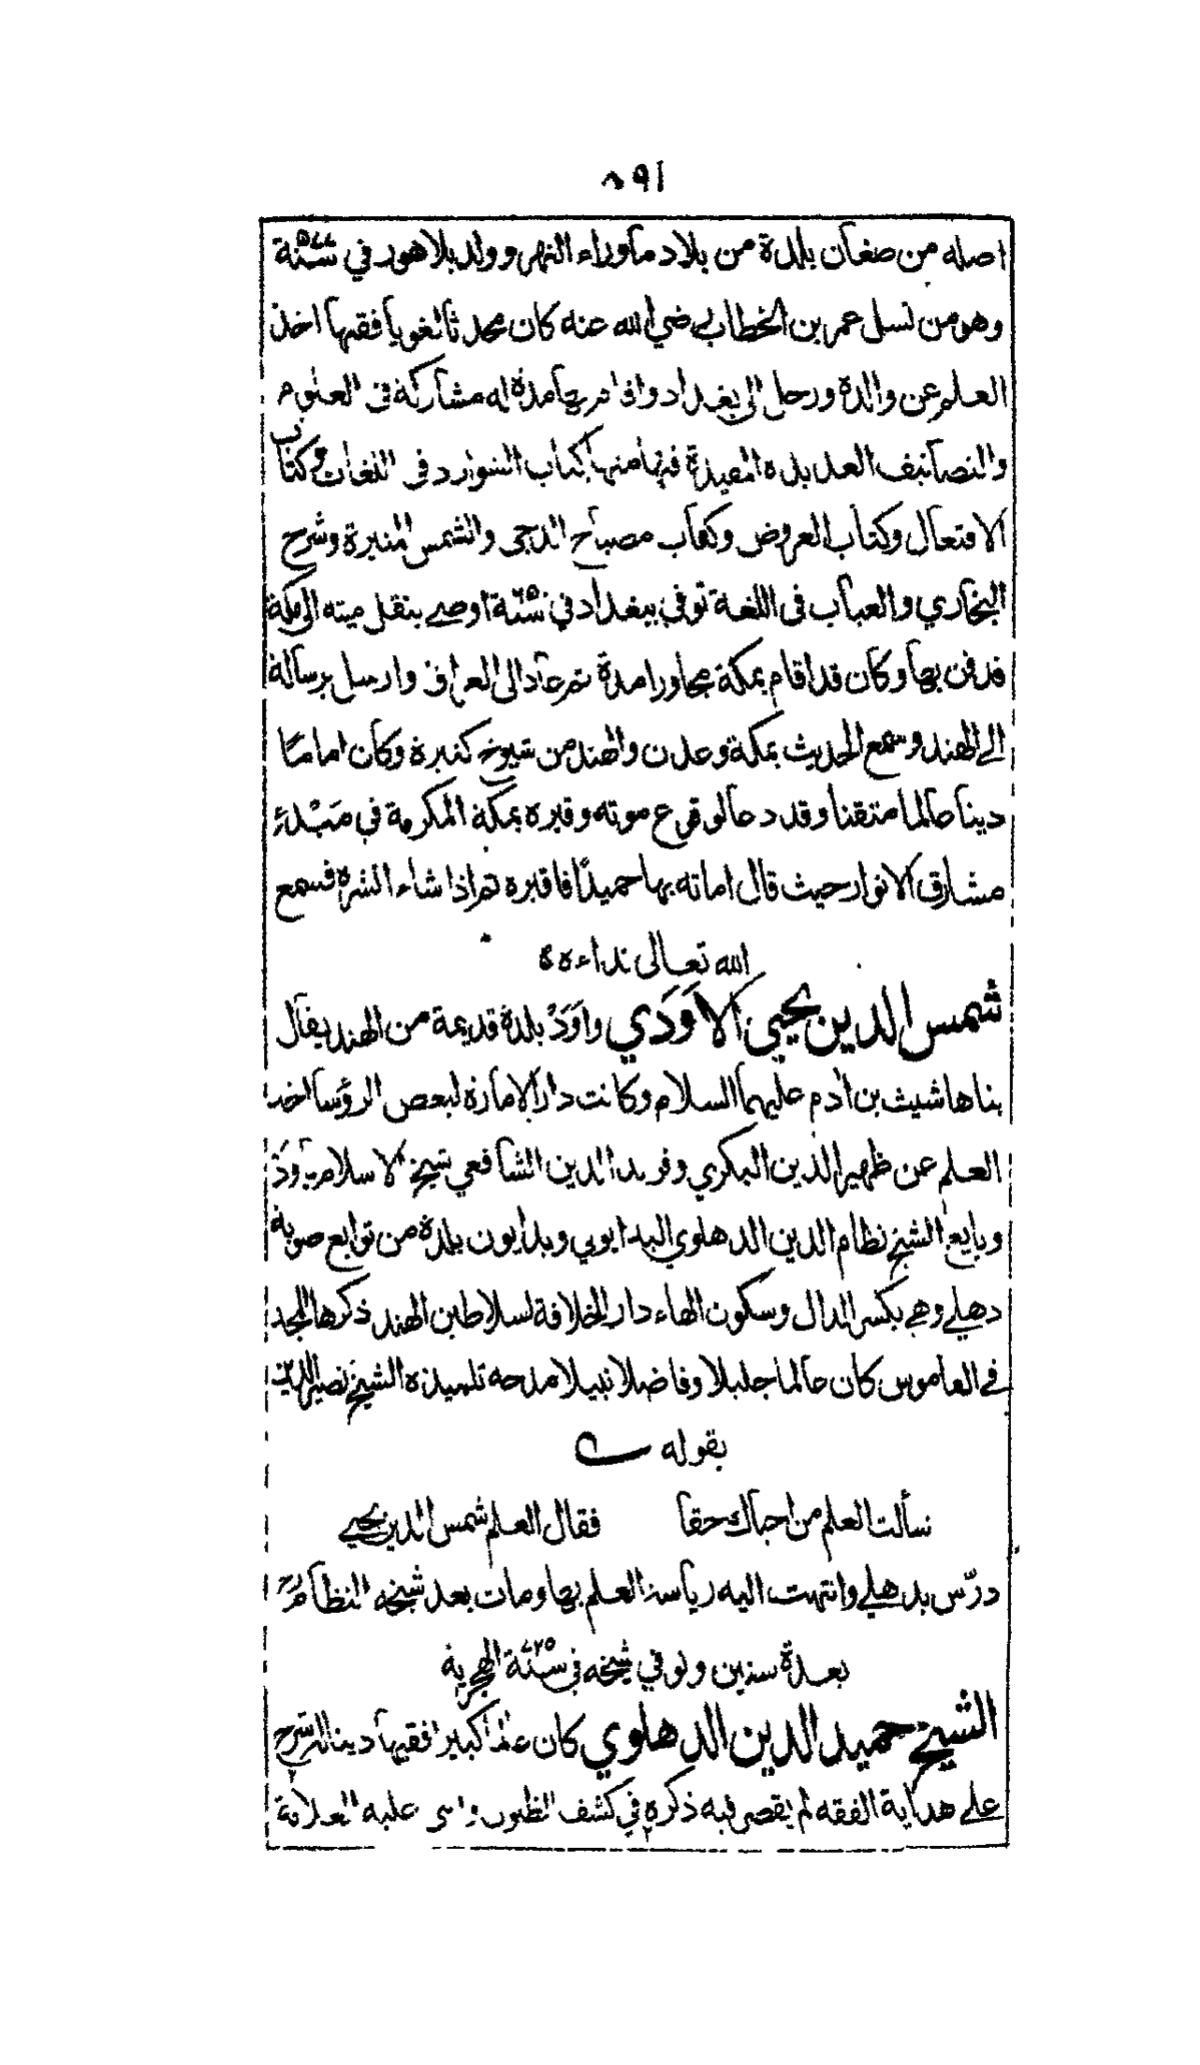 ٨٩١
اصله من صغان بلدة من بلاد ماوراء النهر وولد بلاهور في سنة ٥٧٧
وهو من نسل عمر بن الخطاب رضي الله عنه كان محدثا لغويا فقيها اخذ
العلم عن والدة ورحل الى بغداد واقام بها مدة له مشاركة في العلوم
والتصانيف العديدة المفيدة فيها منها كتاب الشوارد في اللغات وكتاب
الافتعال وكتاب العروض وكتاب مصباح الدجى والشمس المنيرة وشرح
البخاري والعباب في اللغة توفي ببغداد في سنة ٦٥٠ اوصى بنقل ميته الى مكة
فدفن بها وكان قد اقام بمكة مجاورا مدة ثم عاد الى العراق وارسل برسالة
الى الهند وسمع الحديث بمكة وعدن والهند من شيوخ كثيرة وكان اماما
دينا عالما متقنا وقد دعا لوقوع موته وقبره بمكة المكرمة في مبدء
مشارق الانوار حيث قال اماته بها حميدًا فاقبره ثم اذا شاء انشره فسمع
الله تعالى نداءه
شمس الدين يحيى الاَوَدَي واَوَدْ بلدة قديمة من الهند يقال
بناها شيث بن ادم عليهما السلام وكانت دار الامارة لبعض الرؤسا اخذ
العلم عن ظهير الدين البكري وفريد الدين الشافعي شيخ الاسلام باَودْ
وبايع الشيخ نظام الدين الدهلوي البدايوني وبدايون بلدة من توابع صوبة
دهلي وهي بكسر الدال وسكون الهاء دار الخلافة لسلاطين الهند ذكرها المجد
في القاموس كان عالما جليلا وفاضلا نبيلا مدحه تلميذه الشيخ نصير الدين
بقوله
سألت العلم من احياك حقا فقال العلم شمس الدين يحيى
درّس بدهلي وانتهت اليه رياسة العلم بها ومات بعد شيخه النظام
بعدة سنين وتوفي شيخه في سنة ٧٢٥ الهجرية
الشيخ حميد الدين الدهلوي كان عالما كبيرا فقيها دينا له شرح
على هداية الفقه لم يقصر فيه ذكره في كشف الظنون واثنى عليه العلامة